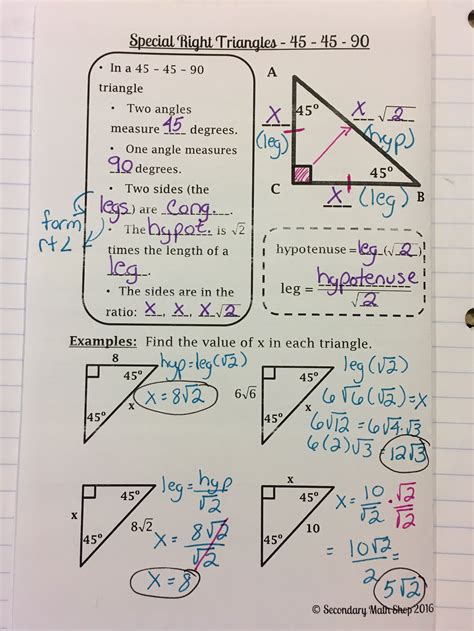 Special Right Triangles - 45 - 45 - 90
• In a 45 – 45 – 90
triangle
• Two angles
measure 45 degrees.
• One angle measures
90 degrees.
• Two sides (the
legs) are cong.
• The hypot. is √2
times the length of a
leg.
• The sides are in the
ratio: x, x, x√2
form
rt ∠
A
45°
x
(leg)
x √2
(hyp)
45°
C
x (leg)
B
hypotenuse = leg (√2)
leg = hypotenuse
√2
Examples: Find the value of x in each triangle.
8
45°
45°
x
hyp = leg(√2)
x = 8√2
6√6
45°
45°
x
leg(√2)
6√6(√2) = x
6√12 = 6√4·√3
6(2)√3 = 12√3
x
45°
45°
8√2
leg = hyp
√2
x = 8√2
√2
x = 8
x
45°
45°
10
x = 10 · √2
√2 √2
= 10√2
2
5√2
© Secondary Math Shop 2016